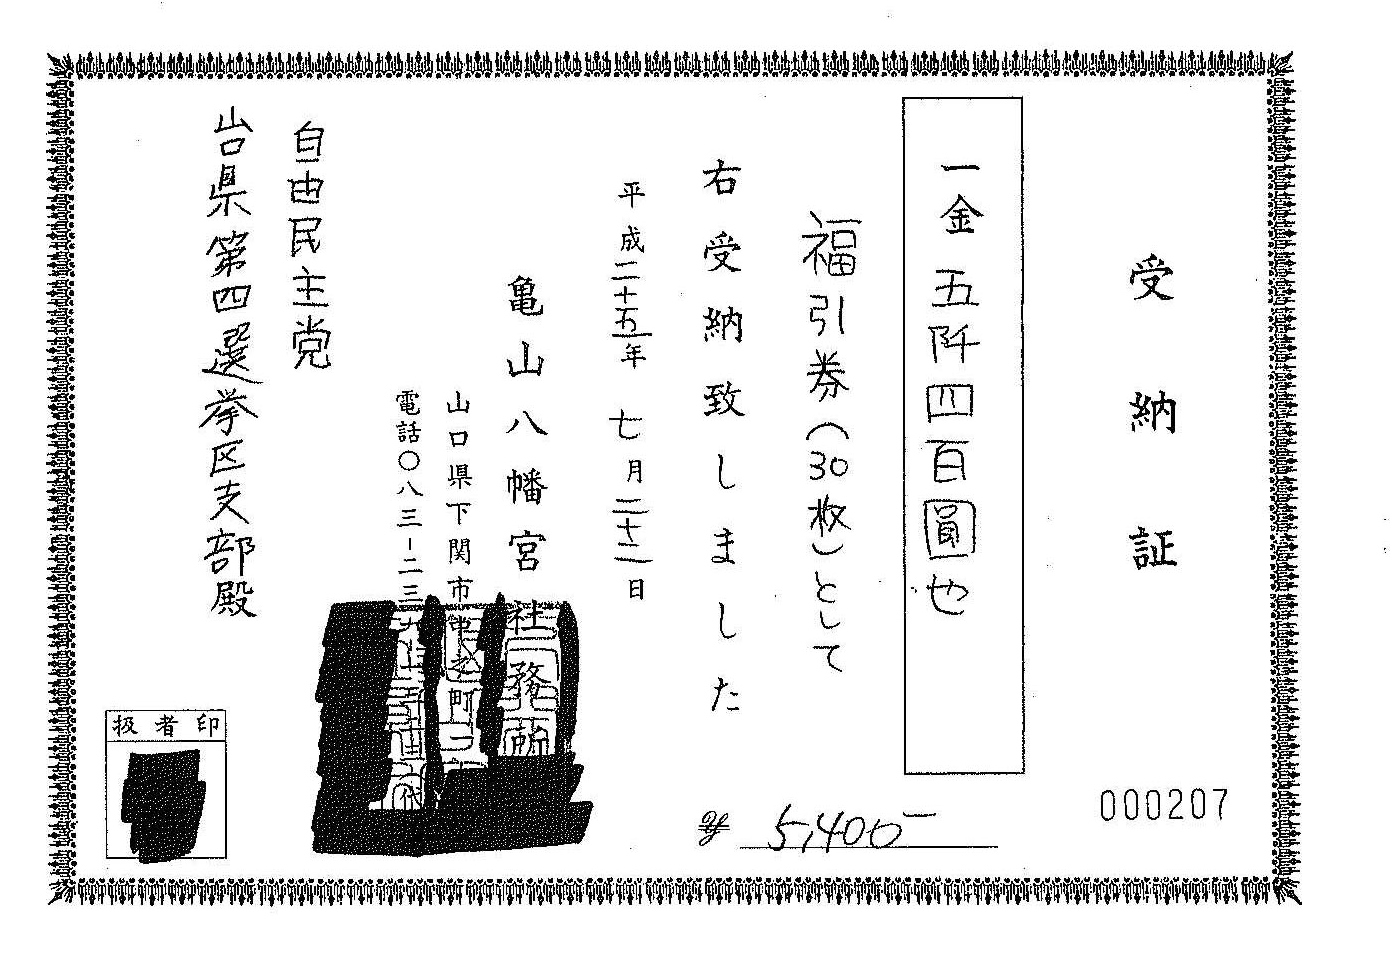 受納証
000207
一金 五阡四百圓也
福引券(30枚)として
右受納致しました
平成二十五年 七月二十二日
亀山八幡宮社務所
山口県下関市中之町一
電話〇八三-二三
自由民主党
山口県第四選挙区支部殿
¥ 5,400-
扱者印